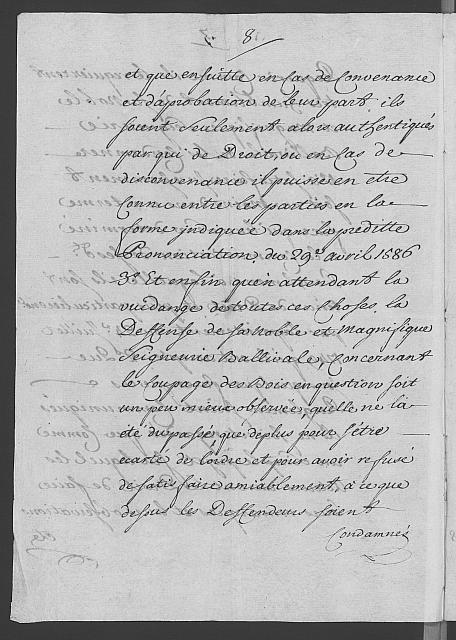 8
et que ensuitte en Cas de Convenance
et d'aprobation de leur part ils
soient seulement alors authentiqués
par qui de Droit, ou en Cas de
disconvenance il puisse en etre
Connu entre les parties en la
forme indiquée dans la préditte
Prononciation, du 29e avril 1586
3o Et enfin qu'en attendant la
vuidange de toutes ces Choses, la
Deffense de sa Noble et Magnifique
Seigneurie Ballivale, Concernant
le Coupage des Bois en question soit
un peu mieux observée, quelle ne la
été du passé, que de plus pour s'étre
ecarté de l'ordre et pour avoir refusé
de satisfaire amiablement, a ce que
dessus les Deffendeurs soient
Condamnés